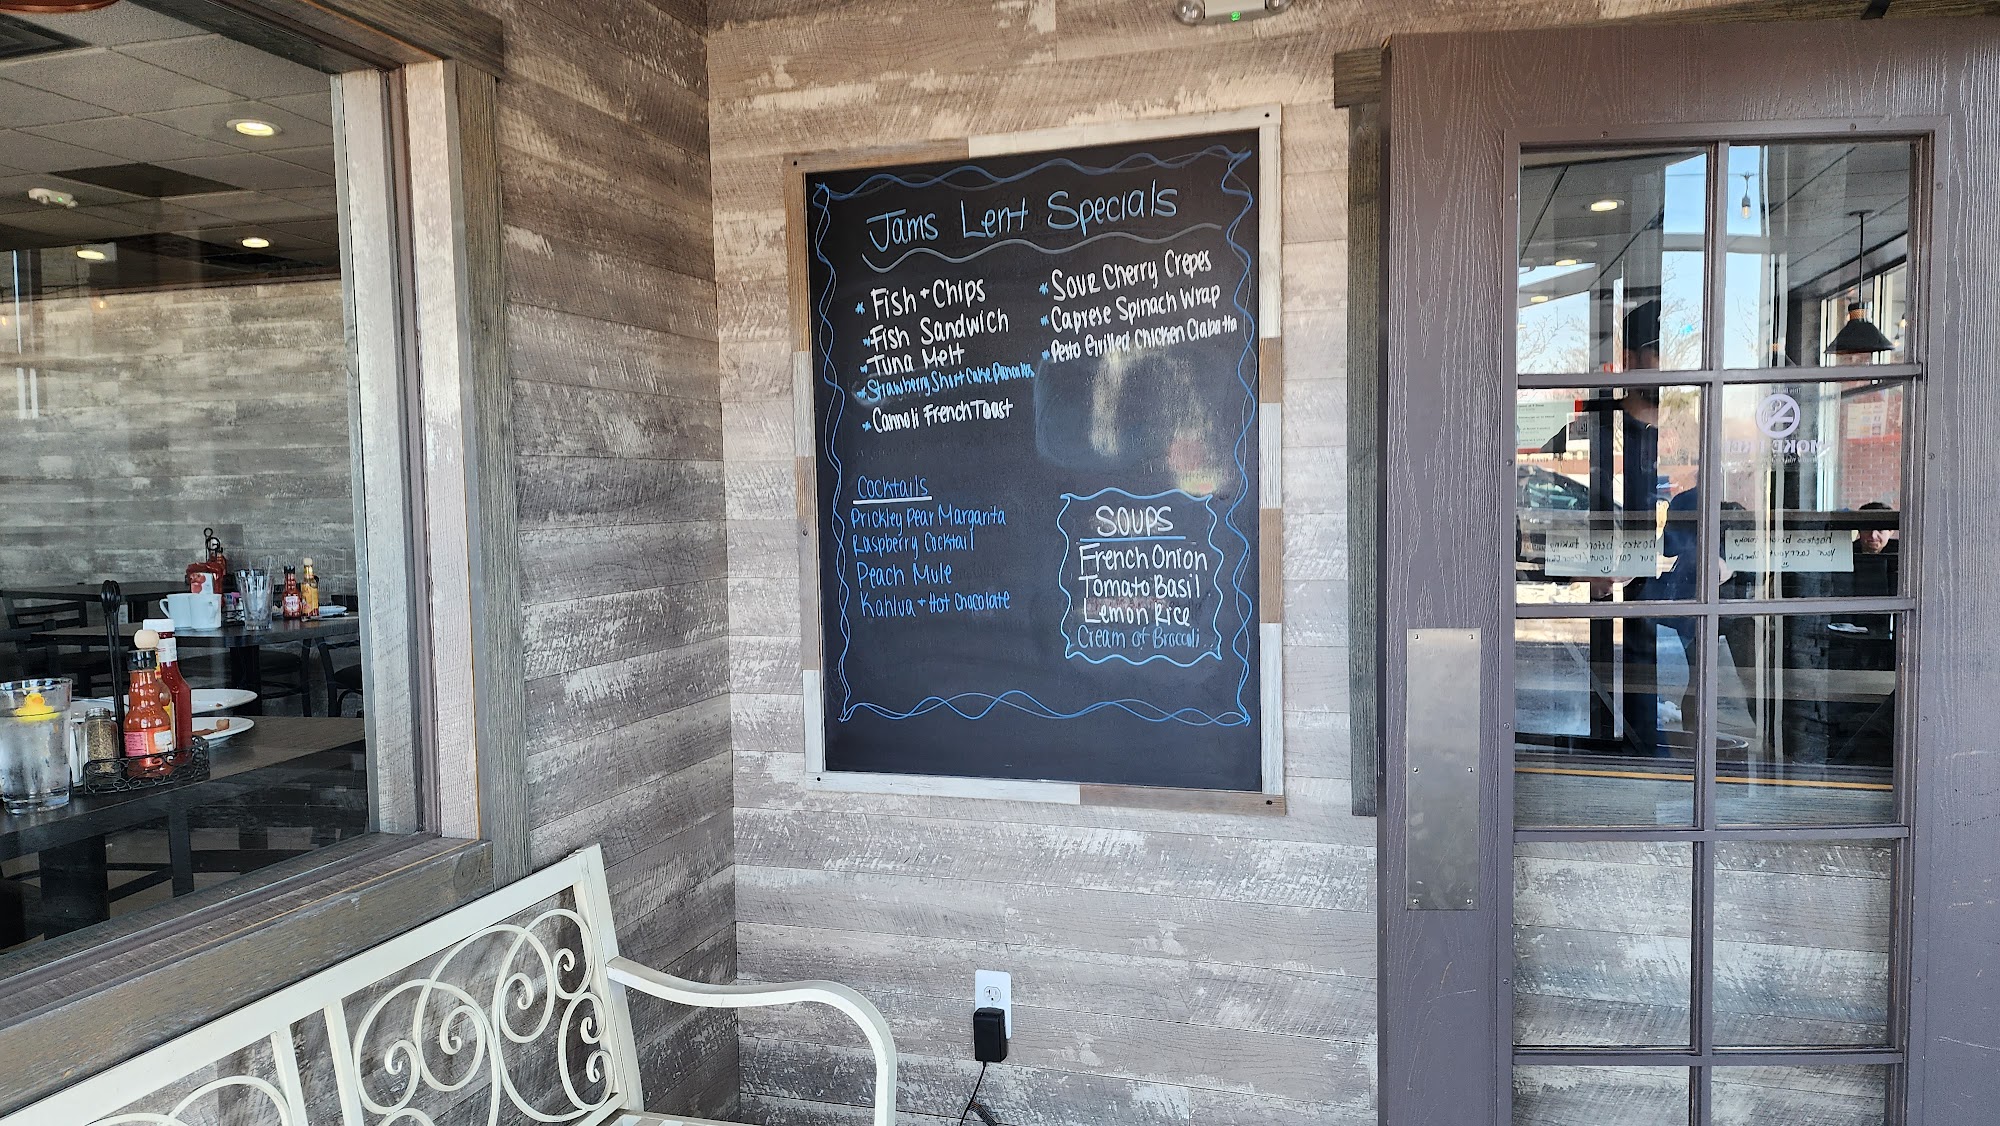 Jams Lent Specials
* Fish + Chips
* Fish Sandwich
* Tuna Melt
* Strawberry Short Cake Pancakes
* Cannoli French Toast
* Sour Cherry Crepes
* Caprese Spinach Wrap
* Pesto Grilled Chicken Ciabatta
Cocktails
Prickley Pear Margarita
Raspberry Cocktail
Peach Mule
Kahlua + Hot Chocolate
SOUPS
French Onion
Tomato Basil
Lemon Rice
Cream of Broccoli